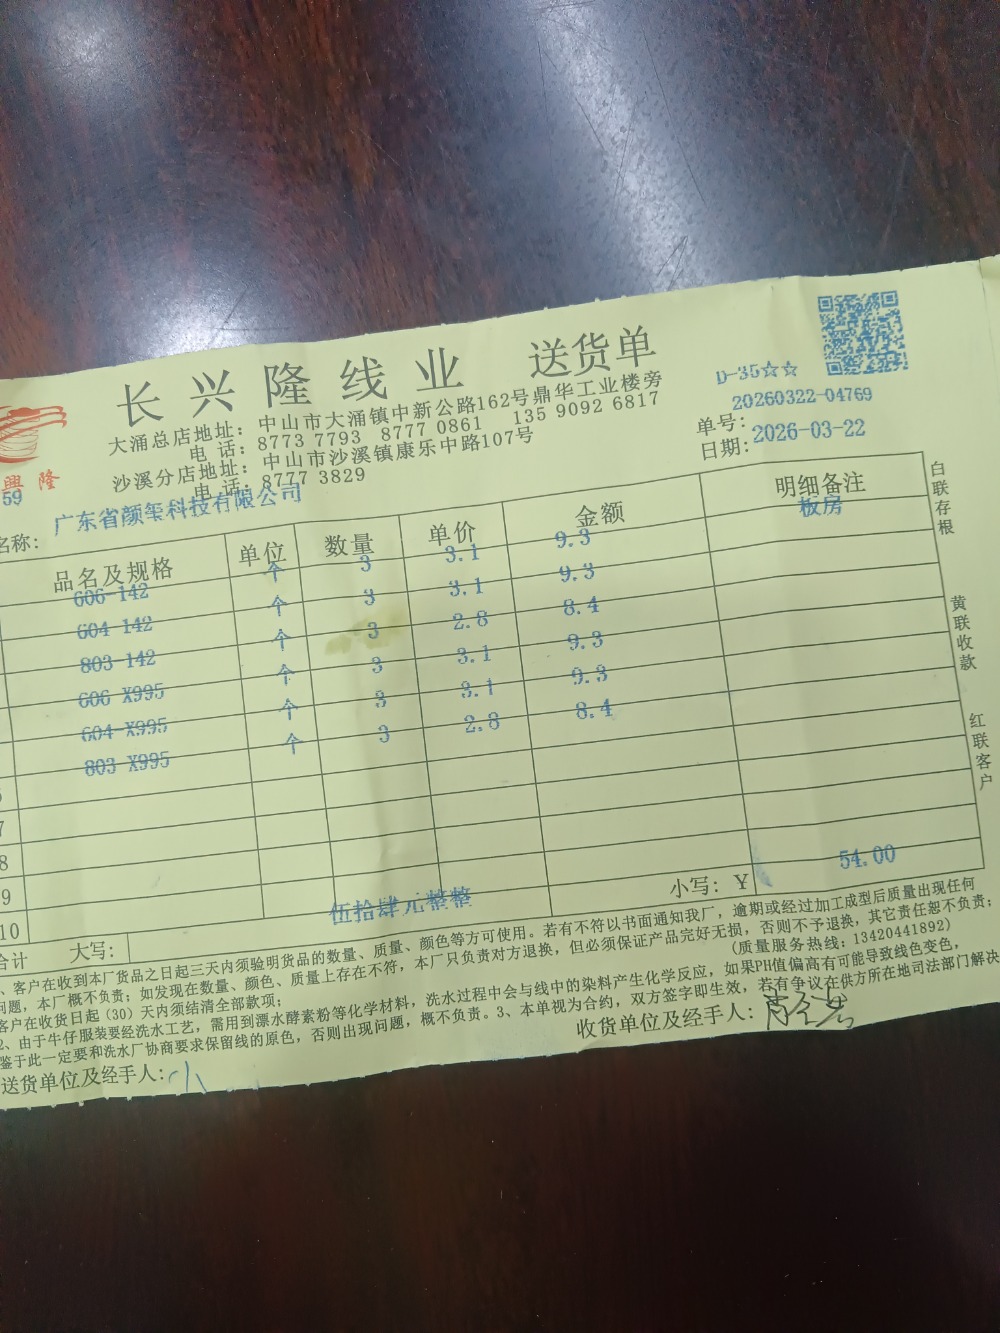 长兴隆线业 送货单
D-35☆☆
興隆
大涌总店地址: 中山市大涌镇中新公路162号鼎华工业楼旁
电话: 8773 7793 8777 0861 135 9092 6817
沙溪分店地址: 中山市沙溪镇康乐中路107号
电话: 8777 3829
单号: 20260322-04769
日期: 2026-03-22
59
名称: 广东省颜玺科技有限公司
品名及规格 单位 数量 单价 金额 明细备注
606-142 个 3 3.1 9.3 板房
604-142 个 3 3.1 9.3
803-142 个 3 2.8 8.4
606-X995 个 3 3.1 9.3
604-X995 个 3 3.1 9.3
803-X995 个 3 2.8 8.4
7
8
9
10
合计 大写: 伍拾肆元整整 小写: ¥ 54.00
、客户在收到本厂货品之日起三天内须验明货品的数量、质量、颜色等方可使用。若有不符以书面通知我厂，逾期或经过加工成型后质量出现任何
问题，本厂概不负责；如发现在数量、颜色、质量上存在不符，本厂只负责对方退换，但必须保证产品完好无损，否则不予退换，其它责任恕不负责；
客户在收货日起(30)天内须结清全部款项； (质量服务热线: 13420441892)
2、由于牛仔服装要经洗水工艺，需用到漂水酵素粉等化学材料，洗水过程中会与线中的染料产生化学反应，如果PH值偏高有可能导致线色变色，
鉴于此一定要和洗水厂协商要求保留线的原色，否则出现问题，概不负责。3、本单视为合约，双方签字即生效，若有争议在供方所在地司法部门解决
送货单位及经手人: 小
收货单位及经手人:
白联存根
黄联收款
红联客户